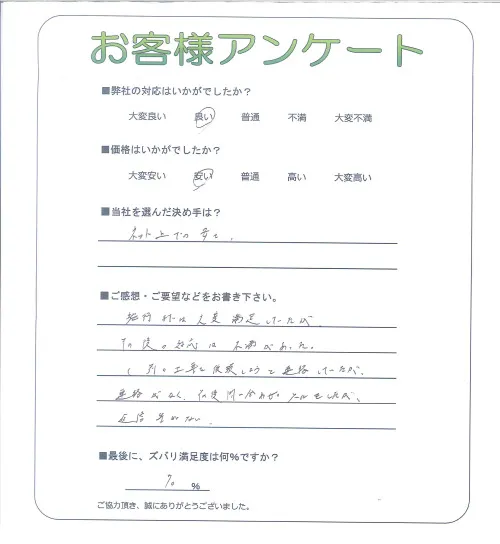 お客様アンケート
■弊社の対応はいかがでしたか？
大変良い 良い 普通 不満 大変不満
■価格はいかがでしたか？
大変安い 安い 普通 高い 大変高い
■当社を選んだ決め手は？
ネット上での
■ご感想・ご要望などをお書き下さい。
は大変満足していたが、
その後の対応は不満があった。
連絡していたが、
連絡がなく、
返信がない。
■最後に、ズバリ満足度は何％ですか？
70 ％
ご協力頂き、誠にありがとうございました。